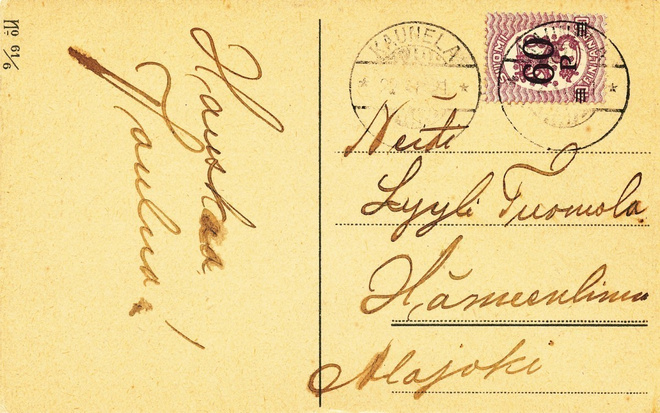 No 61/6
Hauskaa
Joulua!
KAUNELA
SUOMI
FINLAND
60
P
Neiti
Lyyli Tuomola
Hämeenlinna
Alajoki